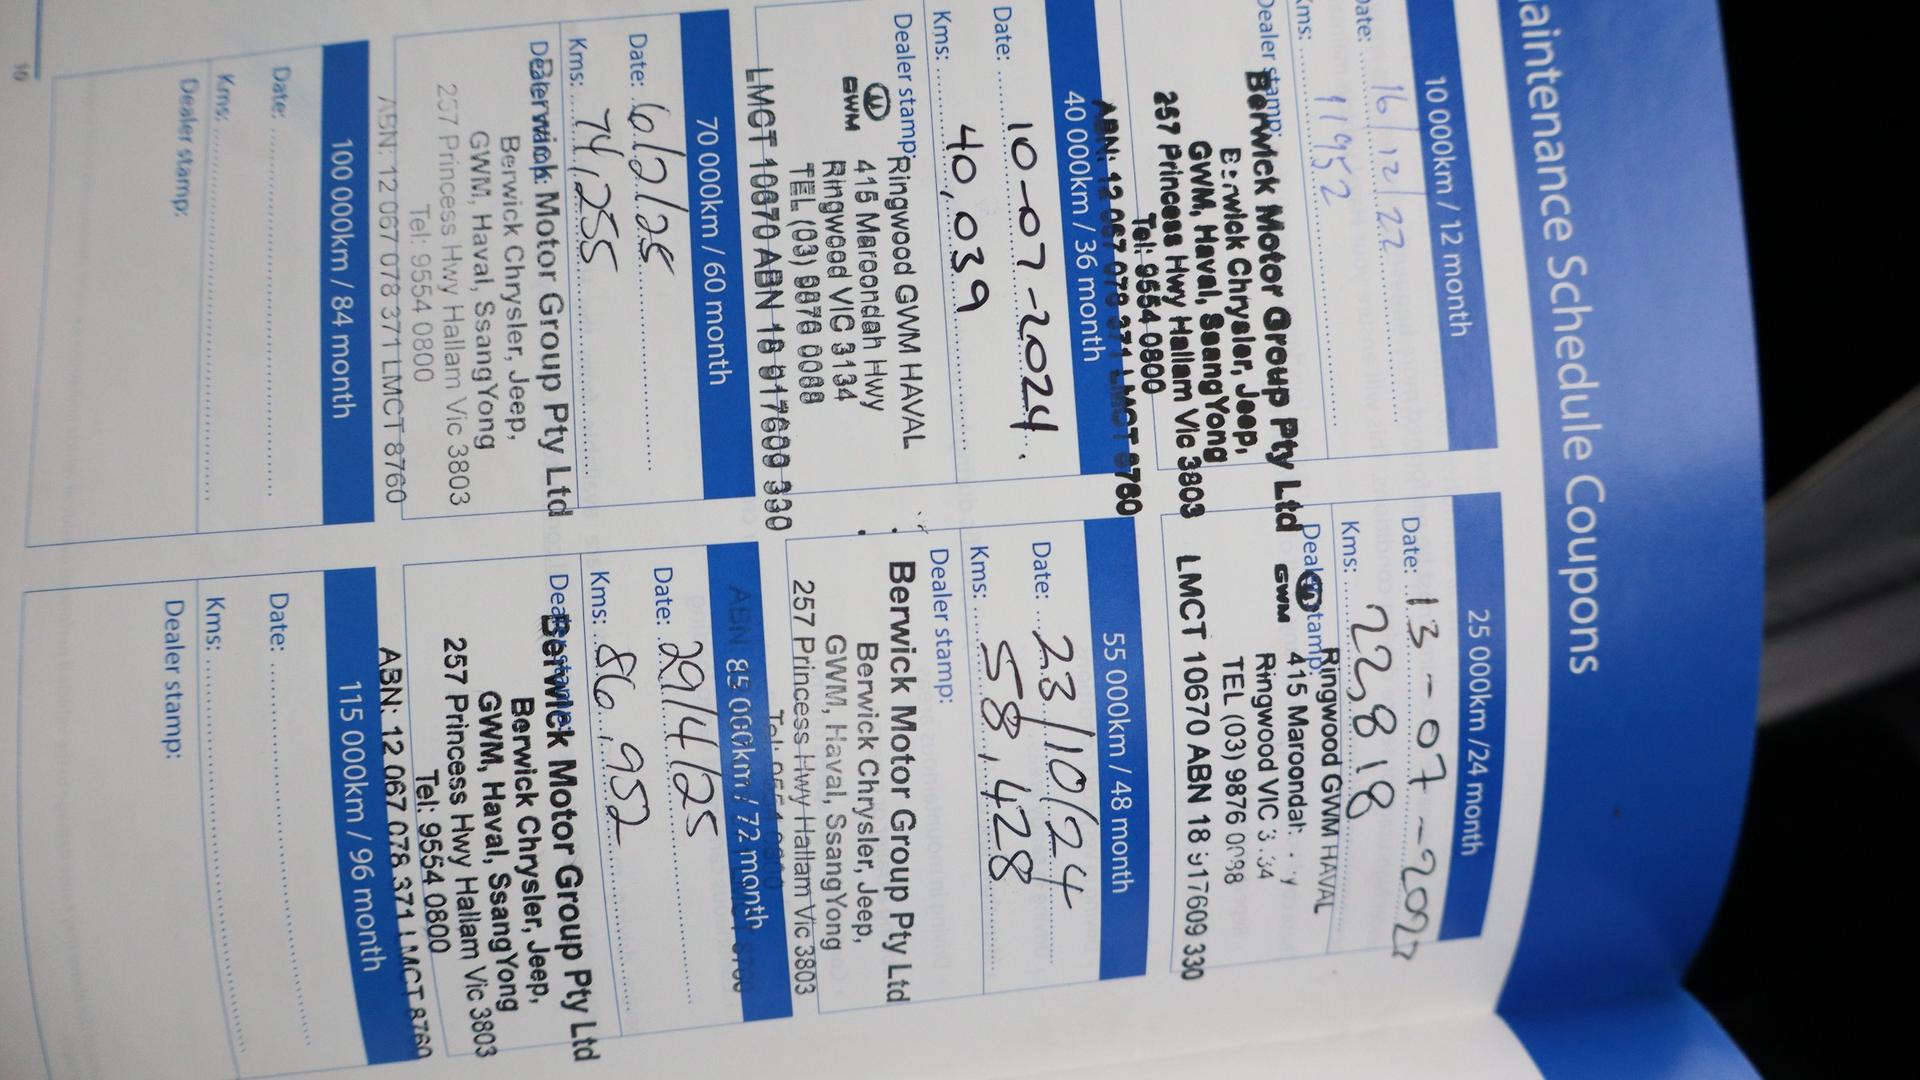 aintenance Schedule Coupons
10 000km / 12 month
Date: 16/12/22
Kms: 11952
Dealer stamp:
Berwick Motor Group Pty Ltd
Berwick Chrysler, Jeep,
GWM, Haval, SsangYong
257 Princess Hwy Hallam Vic 3803
Tel: 9554 0800
ABN: 12 067 078 371 LMCT 8760
25 000km /24 month
Date: 13-07-202
Kms: 22818
Dealer stamp:
Ringwood GWM HAVAL
GWM
415 Maroondah
Ringwood VIC 3134
TEL (03) 9876 0088
LMCT 10670 ABN 18 617609 330
40 000km / 36 month
Date: 10-07-2024.
Kms: 40,039
Dealer stamp:
Ringwood GWM HAVAL
GWM
415 Maroondah Hwy
Ringwood VIC 3134
TEL (03) 9876 0088
LMCT 10670 ABN 18 617609 330
55 000km / 48 month
Date: 23/10/24
Kms: 58,428
Dealer stamp:
Berwick Motor Group Pty Ltd
Berwick Chrysler, Jeep,
GWM, Haval, SsangYong
257 Princess Hwy Hallam Vic 3803
Tel: 9554 0800
ABN: 8760
70 000km / 60 month
Date: 6/2/25
Kms: 74,255
Dealer stamp:
Berwick Motor Group Pty Ltd
Berwick Chrysler, Jeep,
GWM, Haval, SsangYong
257 Princess Hwy Hallam Vic 3803
Tel: 9554 0800
ABN: 12 067 078 371 LMCT 8760
85 000km / 72 month
Date: 29/4/25
Kms: 86,952
Dealer stamp:
Berwick Motor Group Pty Ltd
Berwick Chrysler, Jeep,
GWM, Haval, SsangYong
257 Princess Hwy Hallam Vic 3803
Tel: 9554 0800
ABN: 12 067 078 371 LMCT 8760
100 000km / 84 month
Date:
Kms:
Dealer stamp:
115 000km / 96 month
Date:
Kms:
Dealer stamp:
10